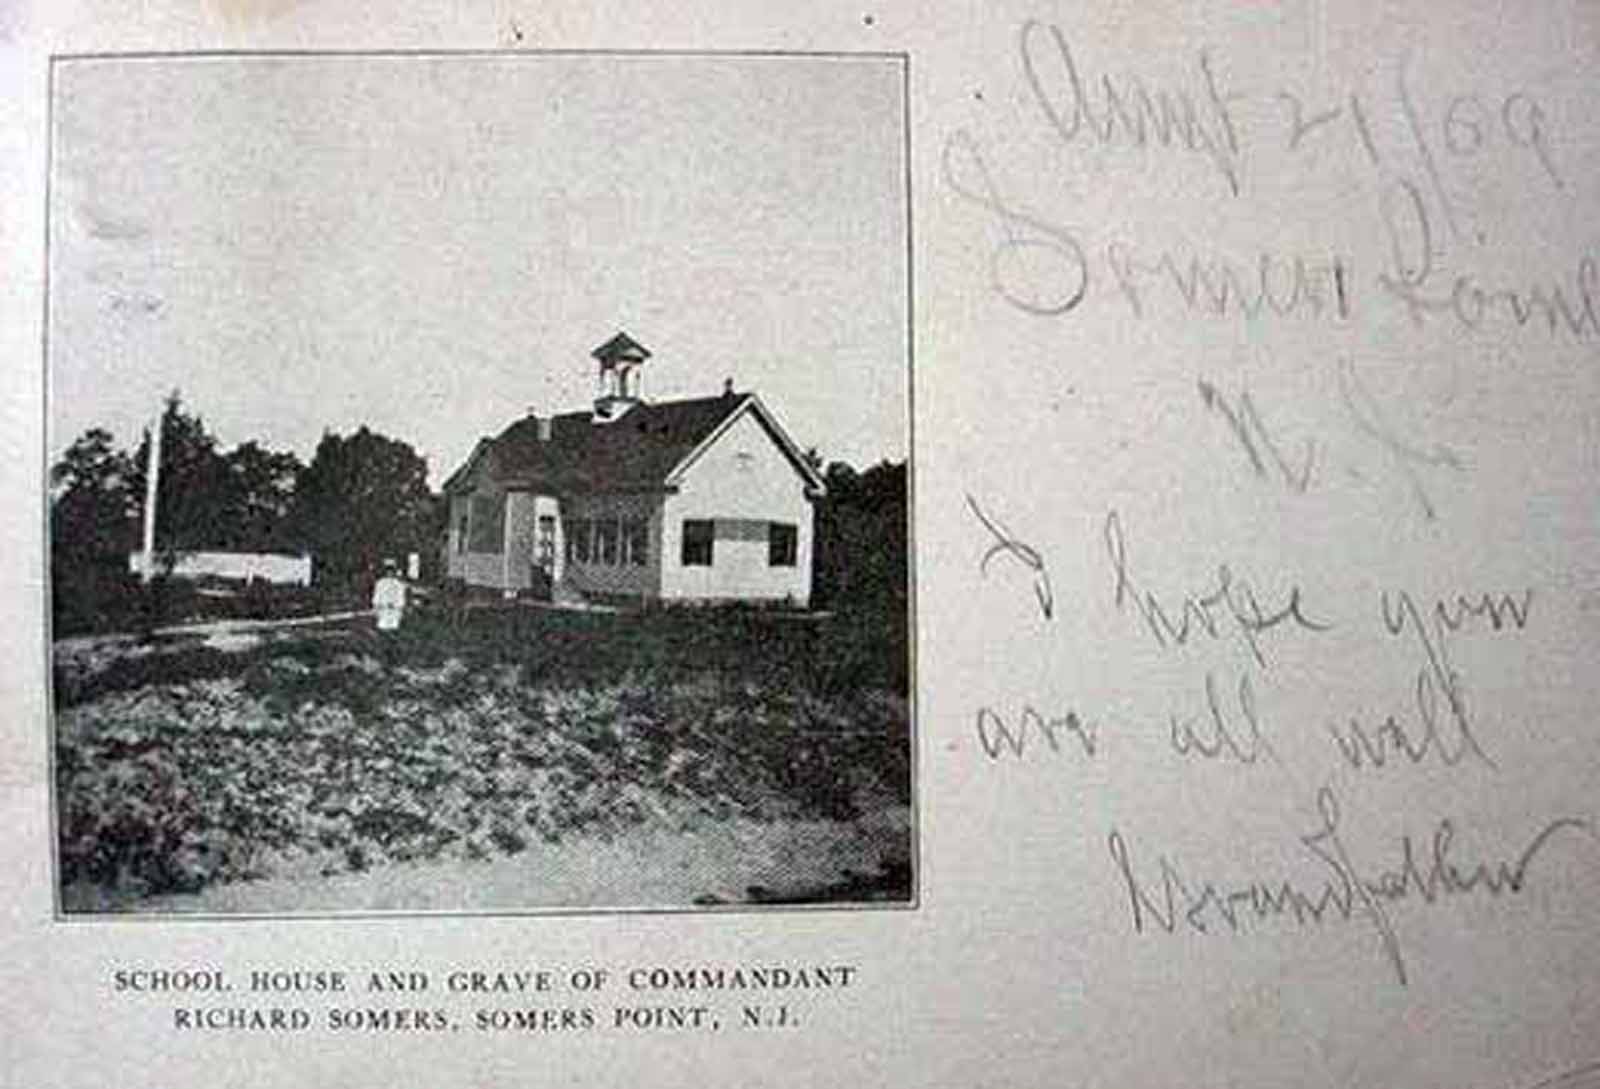 SCHOOL HOUSE AND GRAVE OF COMMANDANT
RICHARD SOMERS, SOMERS POINT, N.J.
21/09
Somers Point
N.J.
I hope you
are all well
Grandfather